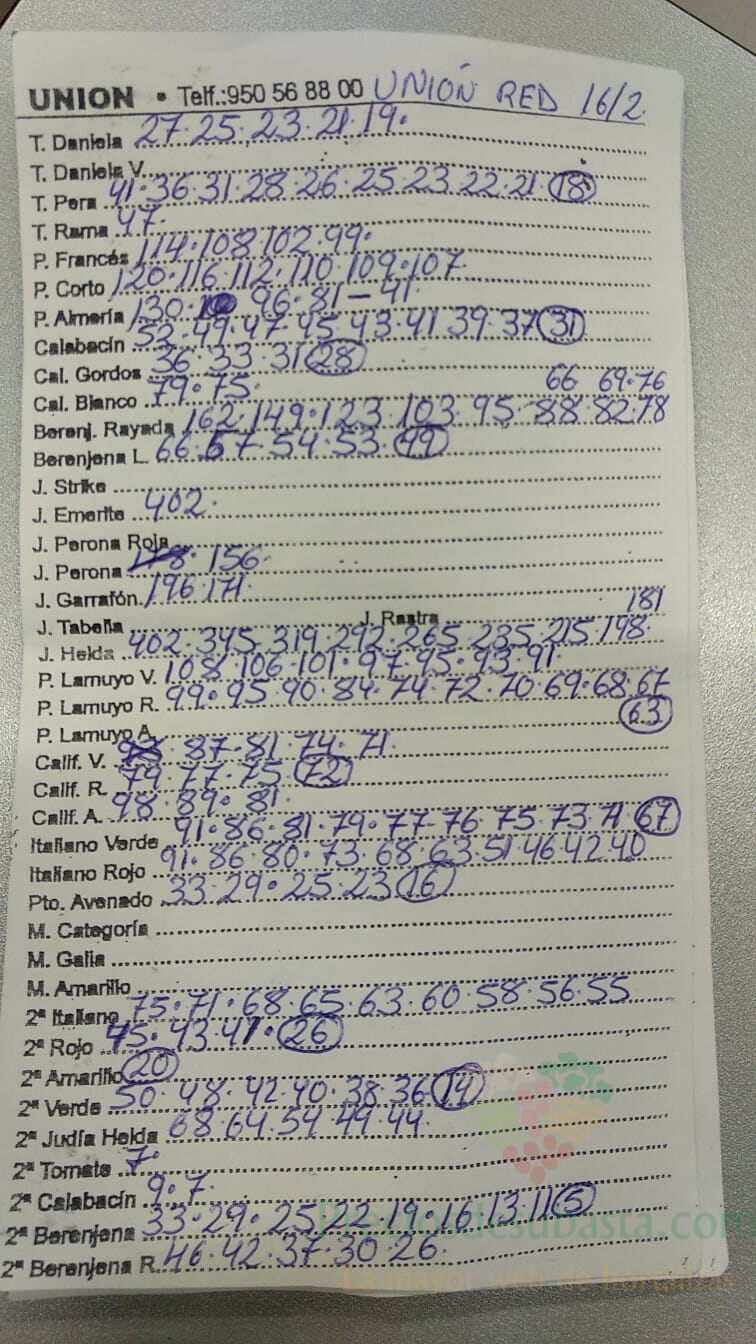 UNION • Telf.:950 56 88 00 UNIÓN RED 16/2.
T. Daniela 27·25·23·21·19·
T. Daniela V.
T. Pera 41·36·31·28·26·25·23·22·21·18
T. Rama 47·
P. Francés 114·108·102·99·
P. Corto 120·116·112·110·109·107·
P. Almería 130· 96·81–41·
Calabacín 53·49·47·45·43·41·39·37 31
Cal. Gordos 36·33·31 28
Cal. Blanco 79·75· 66 69·76
Berenj. Rayada 162·149·123·103·95·88·82·78
Berenjena L. 66·57·54·53·49
J. Strike
J. Emerite 402·
J. Perona Roja
J. Perona 156·
J. Garrafón 196·171
J. Tabella J. Rastra 181
J. Helda 402·345·319·292·265·235·215·198·
P. Lamuyo V. 108·106·101·97·95·93·91
P. Lamuyo R. 99·95·90·84·74·72·70·69·68·67
P. Lamuyo A. 63
Calif. V. 87·81·74·71·
Calif. R. 79·77·75 72
Calif. A. 98·89·81·
Italiano Verde 91·86·81·79·77·76·75·73·71 67
Italiano Rojo 91·86·80·73·68·63·51·46·42·40
Pto. Avenado 33·29·25·23 16
M. Categoría
M. Galia
M. Amarillo
2ª Italiano 75·71·68·65·63·60·58·56·55
2ª Rojo 45·43·41·26
2ª Amarillo 20
2ª Verde 50·48·42·40·38·36 14
2ª Judía Helda 68·64·54·49·44·
2ª Tomate 7·
2ª Calabacín 9·7·
2ª Berenjena 33·29·25·22·19·16·13·11 5
2ª Berenjena R. 46·42·37·30·26·
Preciosdesubasta.com
La mayor web de hortalizas